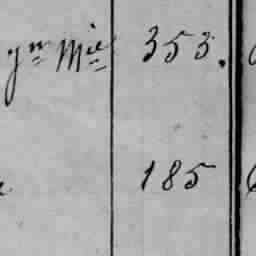 yn Mie 353.
185